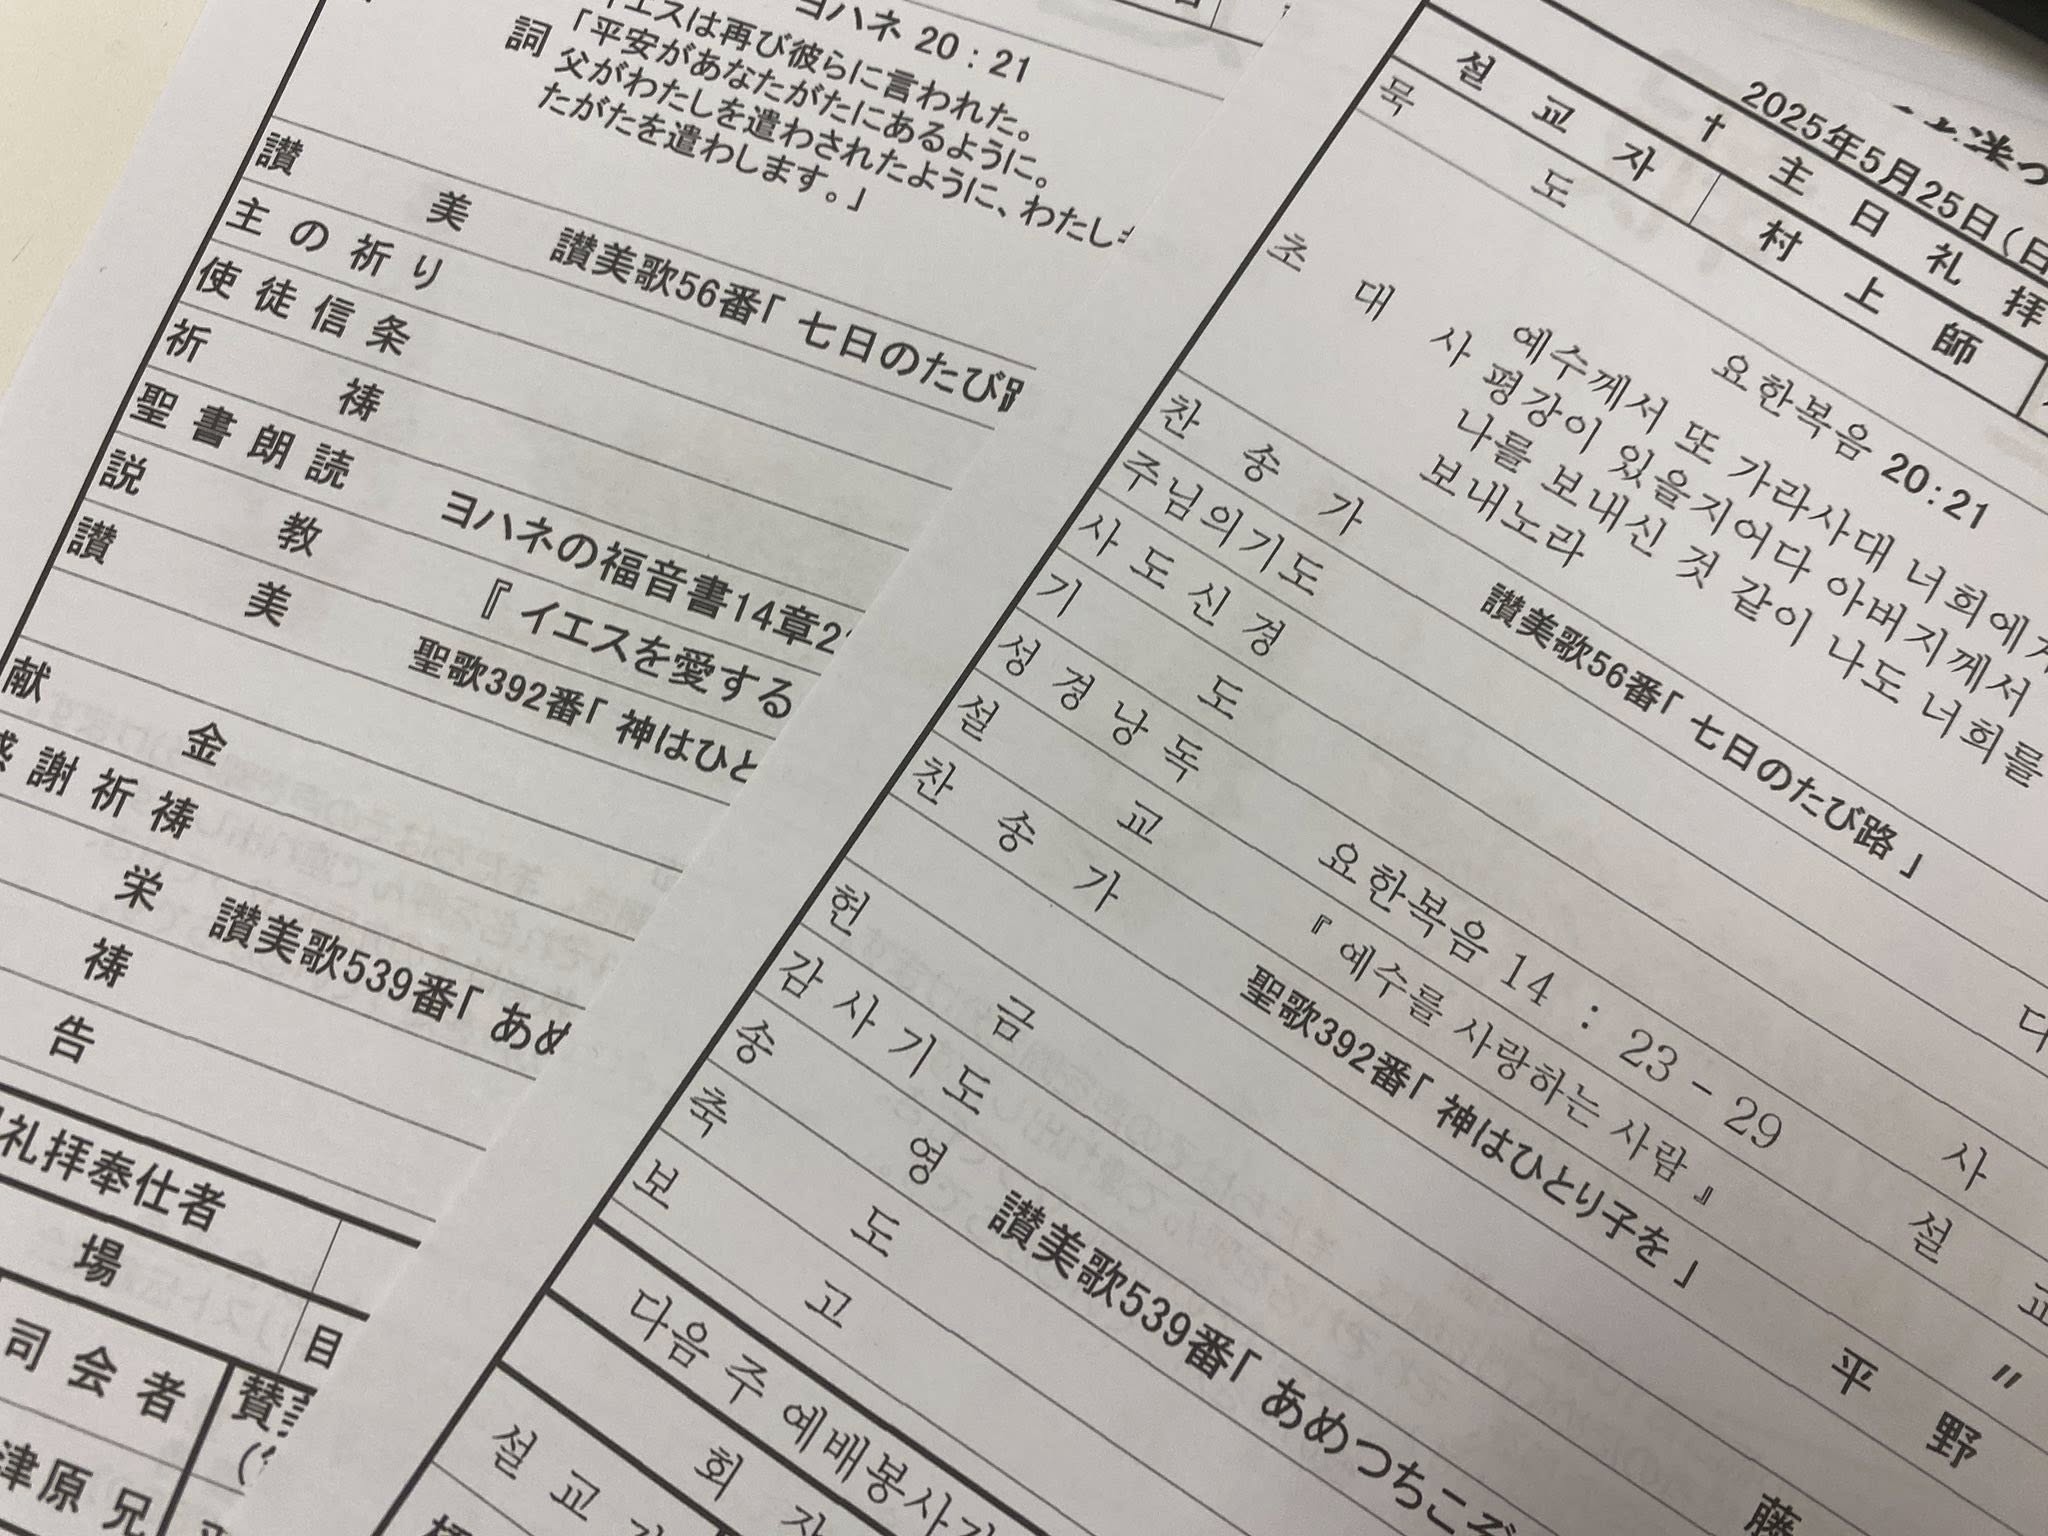 ヨハネ 20：21
イエスは再び彼らに言われた。
「平安があなたがたにあるように。
詞 父がわたしを遣わされたように、わたし
たがたを遣わします。」
讃 美 讃美歌56番「 七日のたび路
主 の 祈 り
使 徒 信 条
祈 祷
聖 書 朗 読 ヨハネの福音書14章2
説 教 『 イエスを愛する
讃 美 聖歌392番「 神はひと
献 金
感 謝 祈 祷
栄 讃美歌539番「 あめ
祷
告
礼拝奉仕者
場 目
司 会 者 賛
津原 兄
2025年5月25日（日
† 主 日 礼 拝
설 교 자 村 上 師
묵 도
요한복음 20：21
초 대 사 예수께서 또 가라사대 너희에게
평강이 있을지어다 아버지께서
나를 보내신 것 같이 나도 너희를
보내노라
찬 송 가 讃美歌56番「 七日のたび路 」
주님의기도
사 도 신 경
기 도
성 경 낭 독 요한복음 14 : 23 - 29 사
설 교 『 예수를 사랑하는 사람 』 설 교
찬 송 가 聖歌392番「 神はひとり子を 」
헌 금 〃
감 사 기 도 平 野
송 영 讃美歌539番「 あめつちこぞ
축 도 藤
보 고
다음 주 예배봉사
회
설 교